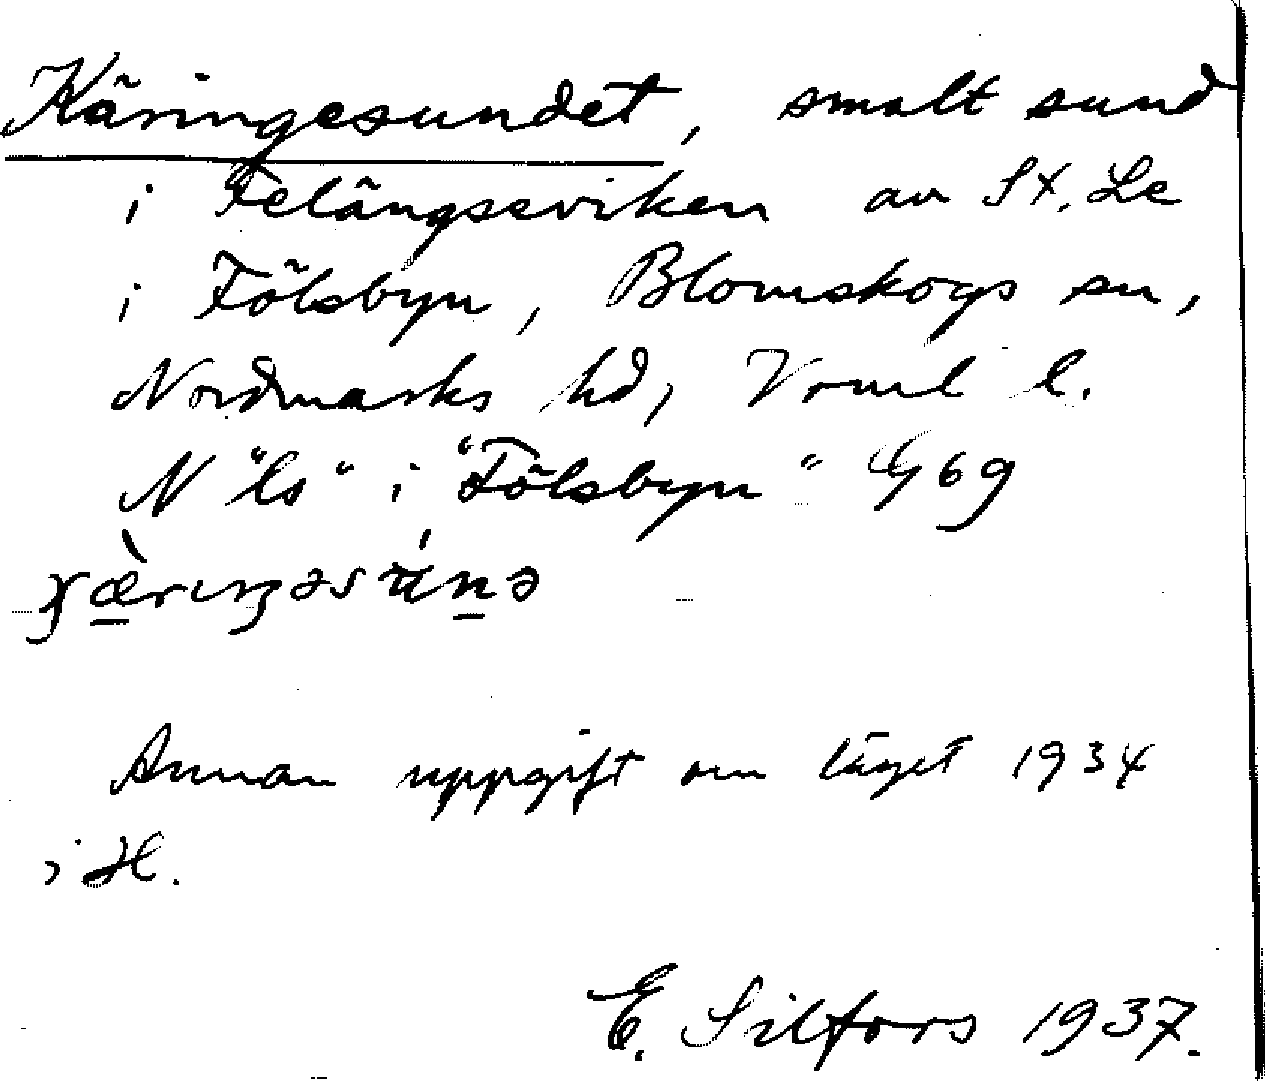 Käringesundet, smalt sund
i Felångseviken av St. Le
i Fölsbyn, Blomskogs sn,
Nordmarks hd, Vrml l.
N "ls" i "Fölsbyn" G 69
Annan uppgift om läget 1934
i H.
E. Silfors 1937.